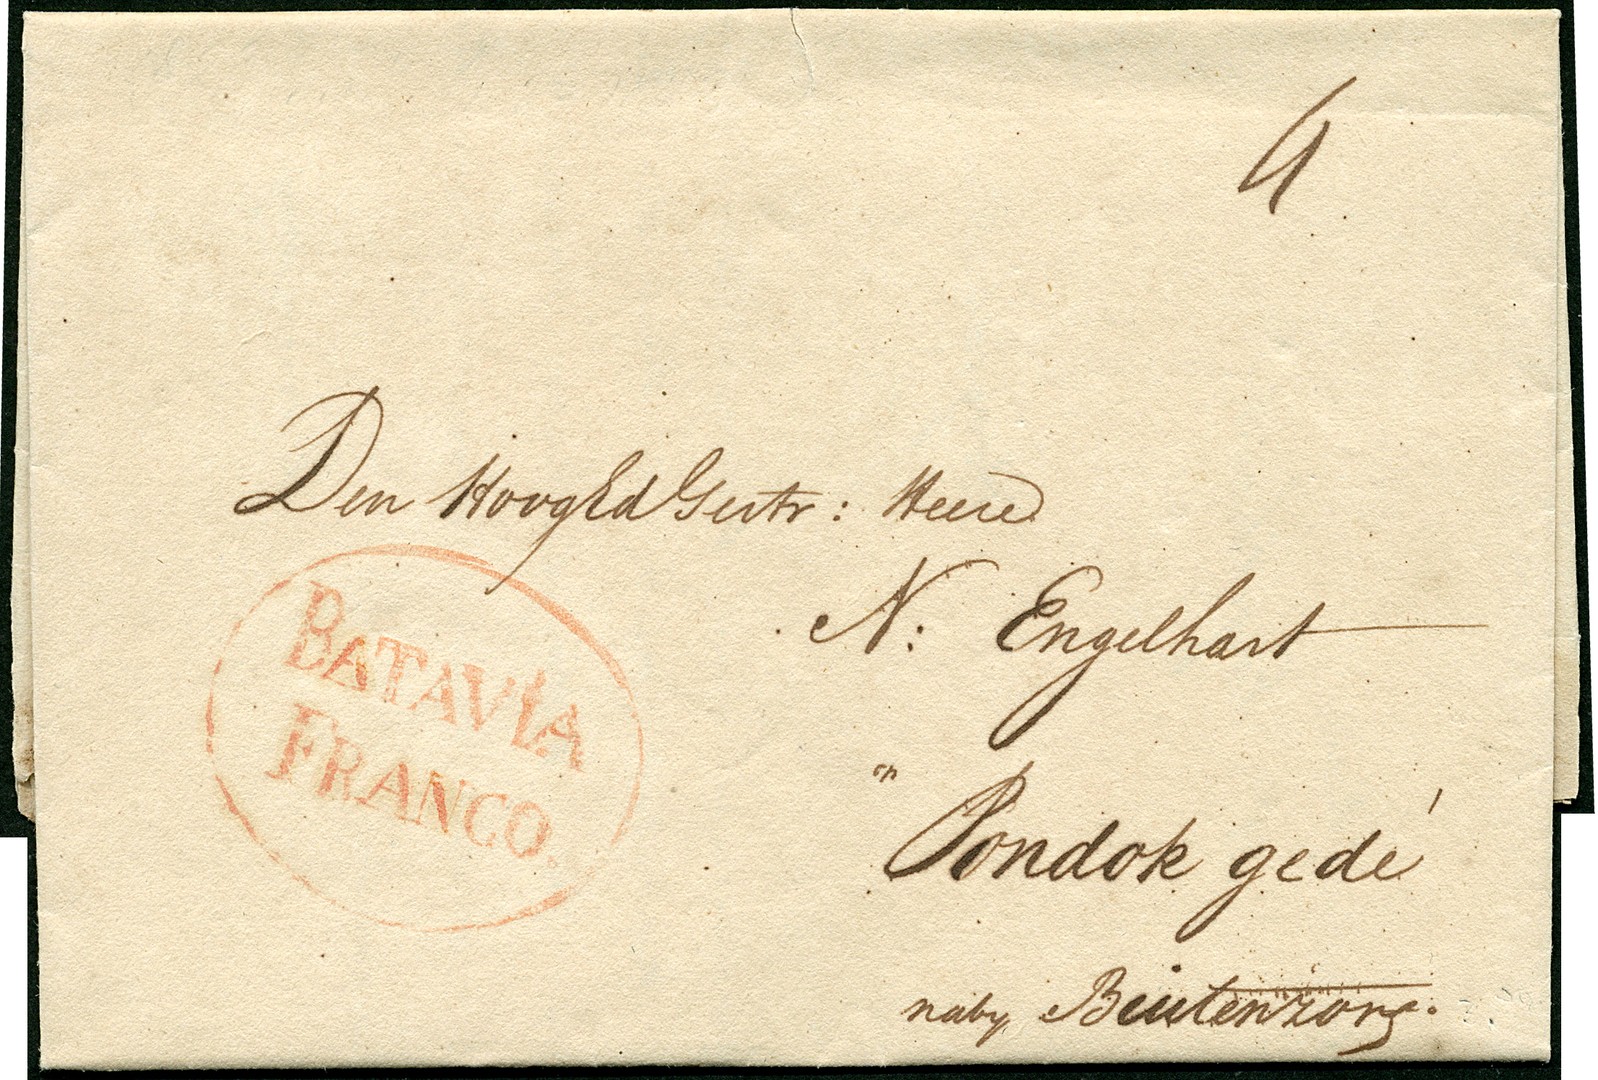 4
Den HoogEd Gestr: Heere
N: Engelhart
op
Pondok gedé
naby Buitenzorg.
BATAVIA
FRANCO.